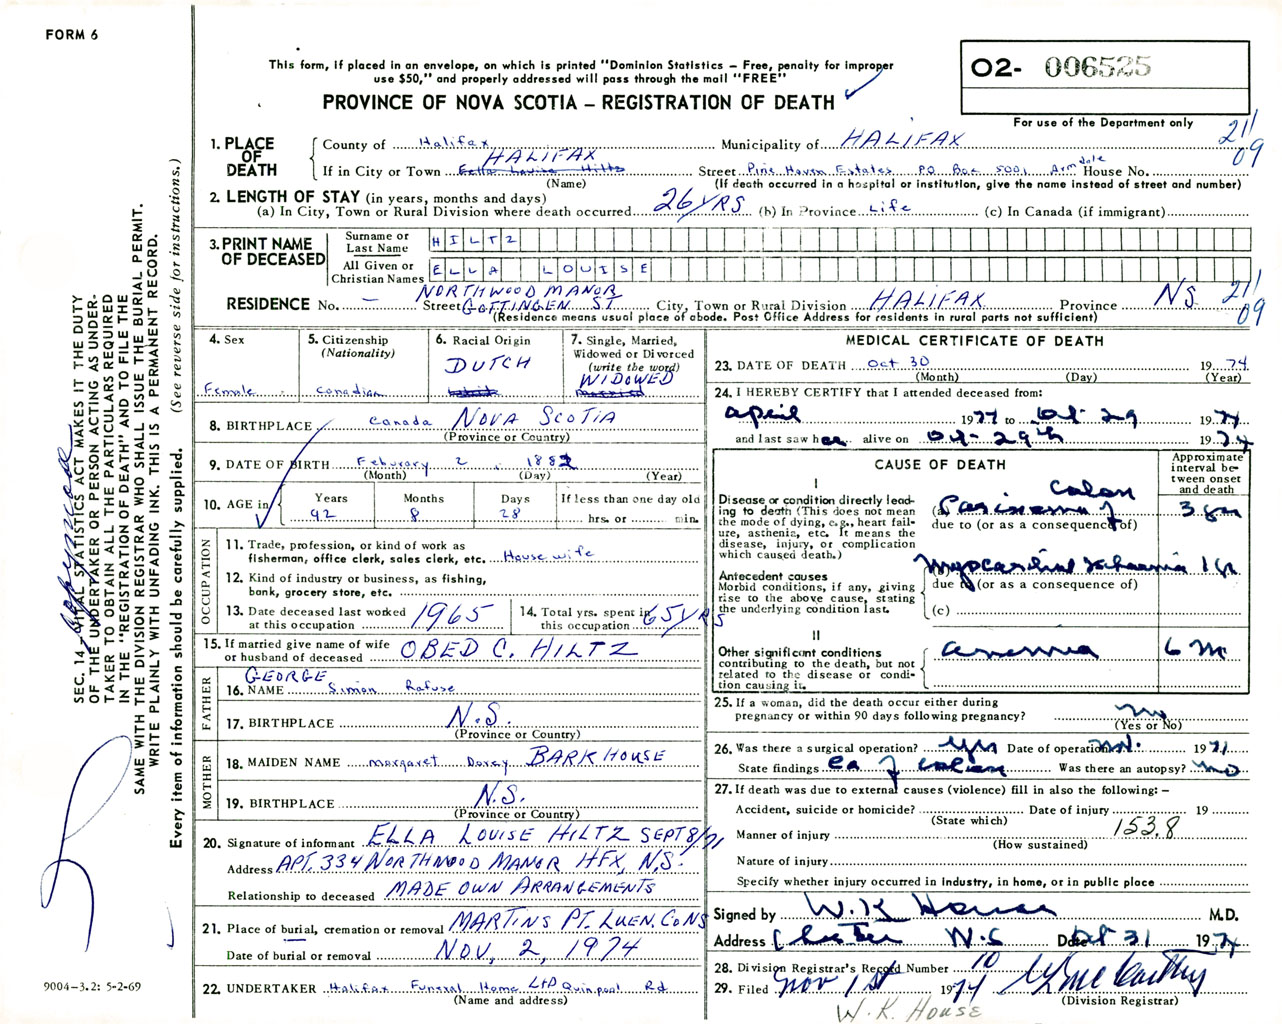 FORM 6
This form, if placed in an envelope, on which is printed "Dominion Statistics – Free, penalty for improper
use $50," and properly addressed will pass through the mail "FREE"
PROVINCE OF NOVA SCOTIA – REGISTRATION OF DEATH
O2- 006525
For use of the Department only
21/09
1. PLACE OF DEATH
County of Halifax Municipality of HALIFAX
HALIFAX
If in City or Town Ella Louise Hiltz Street Pine Haven Estates PO Box 5001 Armdale House No.
(Name) (If death occurred in a hospital or institution, give the name instead of street and number)
2. LENGTH OF STAY (in years, months and days)
(a) In City, Town or Rural Division where death occurred 26 YRS (b) In Province Life (c) In Canada (if immigrant)
3. PRINT NAME OF DECEASED
Surname or Last Name HILTZ
All Given or Christian Names ELLA LOUISE
NORTHWOOD MANOR
RESIDENCE No. – Street GOTTINGEN ST City, Town or Rural Division HALIFAX Province NS 21/09
(Residence means usual place of abode. Post Office Address for residents in rural parts not sufficient)
4. Sex Female
5. Citizenship (Nationality) Canadian
6. Racial Origin DUTCH
7. Single, Married, Widowed or Divorced (write the word) WIDOWED married
8. BIRTHPLACE Canada NOVA SCOTIA
(Province or Country)
9. DATE OF BIRTH Feburary 2, 1882
(Month) (Day) (Year)
10. AGE in Years 92 Months 8 Days 28 If less than one day old hrs. or min.
OCCUPATION
11. Trade, profession, or kind of work as
fisherman, office clerk, sales clerk, etc. Housewife
12. Kind of industry or business, as fishing,
bank, grocery store, etc.
13. Date deceased last worked at this occupation 1965
14. Total yrs. spent in this occupation 65 YRS
15. If married give name of wife
or husband of deceased OBED C. HILTZ
FATHER
GEORGE
16. NAME Simon Rafuse
17. BIRTHPLACE N.S.
(Province or Country)
MOTHER
18. MAIDEN NAME Margaret Darcy BARKHOUSE
19. BIRTHPLACE N.S.
(Province or Country)
20. Signature of informant ELLA LOUISE HILTZ SEPT 8/71
Address APT. 334 NORTHWOOD MANOR HFX, N.S.
Relationship to deceased MADE OWN ARRANGEMENTS
21. Place of burial, cremation or removal MARTINS PT. LUEN. CO NS
Date of burial or removal NOV, 2, 1974
22. UNDERTAKER Halifax Funeral Home LTD Quinpool Rd
(Name and address)
MEDICAL CERTIFICATE OF DEATH
23. DATE OF DEATH Oct 30 19 74
(Month) (Day) (Year)
24. I HEREBY CERTIFY that I attended deceased from:
April 1971 to Oct 29 1974
and last saw her alive on Oct 29th 1974
CAUSE OF DEATH
Approximate interval between onset and death
I
Disease or condition directly leading to death (This does not mean the mode of dying, e.g., heart failure, asthenia, etc. It means the disease, injury, or complication which caused death.)
colon
(a) Carcinoma of 3 yrs
due to (or as a consequence of)
Antecedent causes
Morbid conditions, if any, giving rise to the above cause, stating the underlying condition last.
myocardial ischaemia 1 yr
due to (or as a consequence of)
(c)
II
Other significant conditions contributing to the death, but not related to the disease or condition causing it.
anemia 6 m
25. If a woman, did the death occur either during
pregnancy or within 90 days following pregnancy? no
(Yes or No)
26. Was there a surgical operation? yes Date of operation Nov. 1971
State findings Ca of colon Was there an autopsy? no
27. If death was due to external causes (violence) fill in also the following: –
Accident, suicide or homicide? Date of injury 19
(State which)
Manner of injury 153.8
(How sustained)
Nature of injury
Specify whether injury occurred in industry, in home, or in public place
Signed by W.K House M.D.
Address Chester N.S Date Oct 31 1974
28. Division Registrar's Record Number 10
29. Filed Nov 1st 1974
(Division Registrar)
W. K. House
SEC. 14 – VITAL STATISTICS ACT MAKES IT THE DUTY
OF THE UNDERTAKER OR PERSON ACTING AS UNDER-
TAKER TO OBTAIN ALL THE PARTICULARS REQUIRED
IN THE "REGISTRATION OF DEATH" AND TO FILE THE
SAME WITH THE DIVISION REGISTRAR WHO SHALL ISSUE THE BURIAL PERMIT.
WRITE PLAINLY WITH UNFADING INK. THIS IS A PERMANENT RECORD.
Every item of information should be carefully supplied. (See reverse side for instructions.)
9004-3.2: 5-2-69